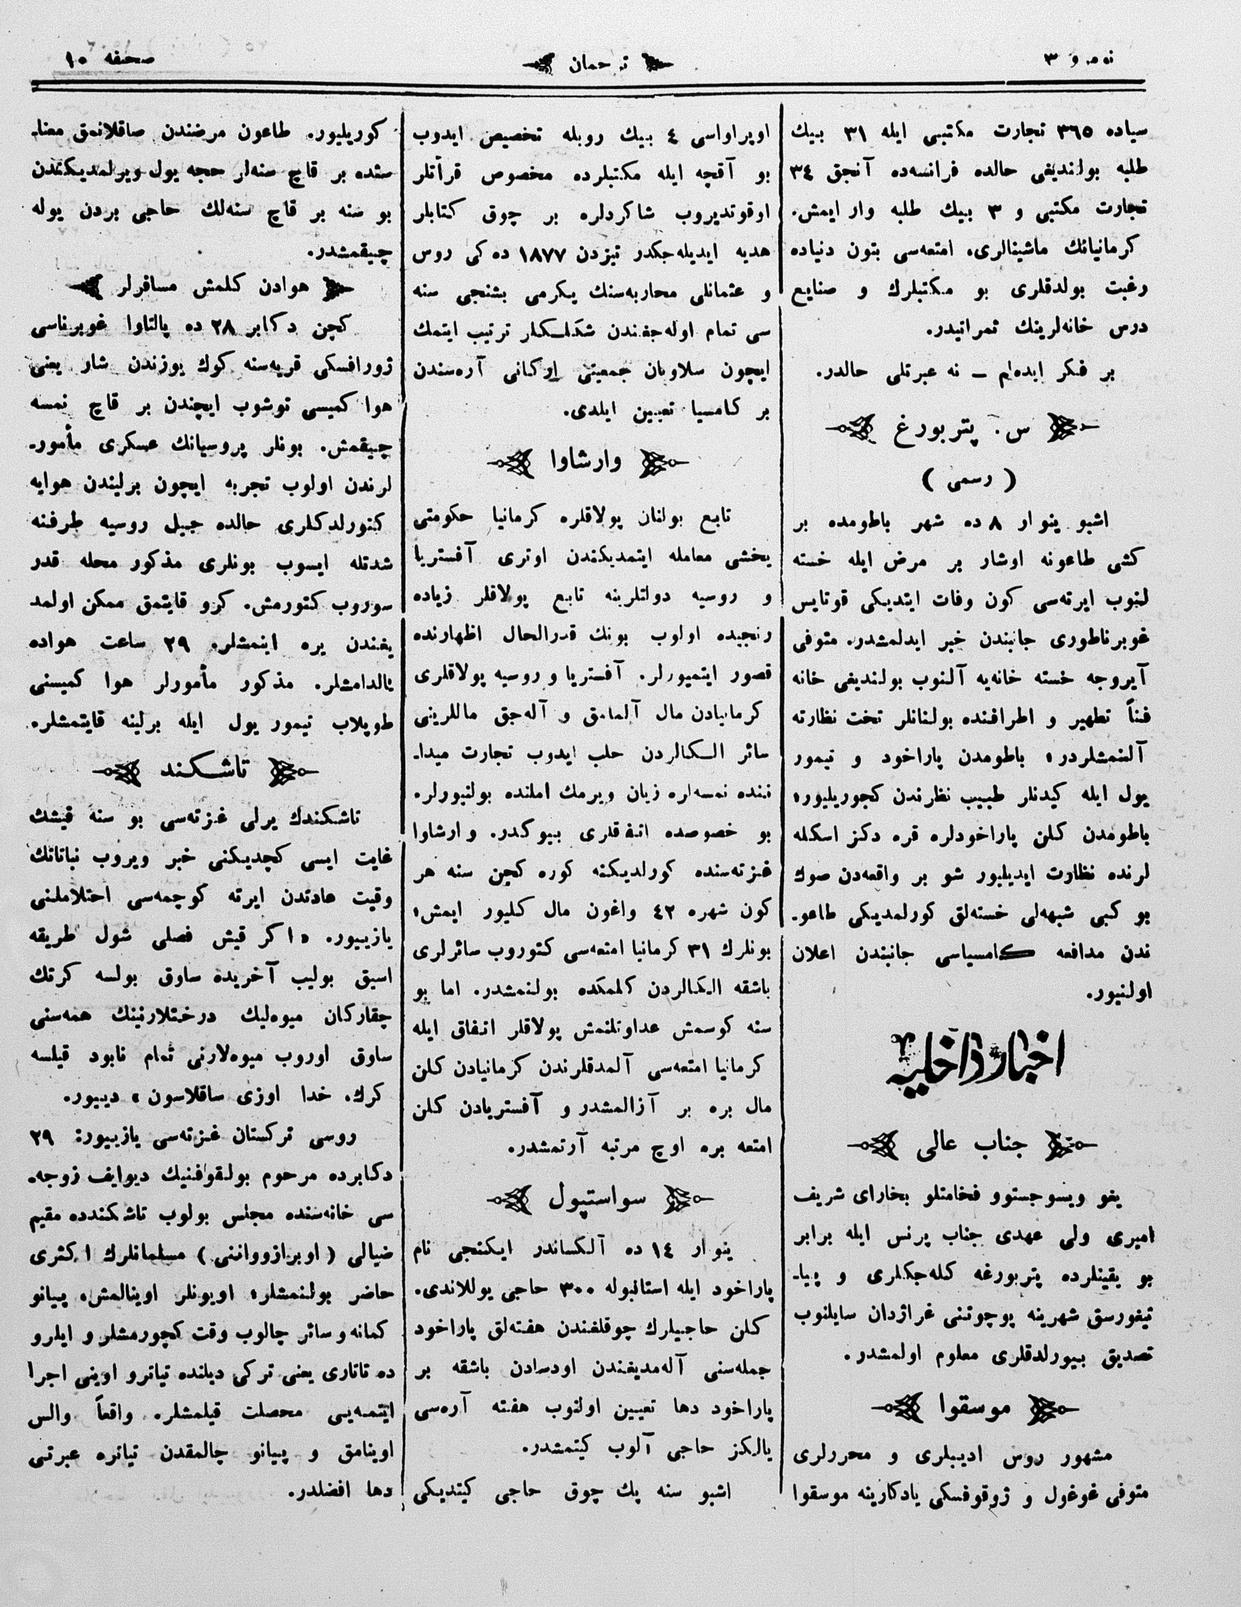 نومرو ٣
ترجمان
صحفه ١٠
سیاده ٣٦٥ تجارت مکتبی ایله ٣١ بیك
طلبه بولندیغی حالده فرانسه‌ده آنجق ٣٤
تجارت مکتبی و ٣ بیك طلبه وار ایمش.
کرمانیانك ماشینالری، امتعه‌سی بتون دنیاده
رغبت بولدقلری بو مکتبلرك و صنایع
درس خانه‌لرینك ثمراتیدر.
بر فکر ایده‌لم ــ نه عبرتلی حالدر.
س. پتربورغ
( رسمی )
اشبو ینوار ٨ ده شهر باطومده بر
کشی طاعونه اوشار بر مرض ایله خسته
لنوب ایرته‌سی کون وفات ایتدیکی قوتایس
غوبرناطوری جانبندن خبر ایدلمشدر. متوفی
آیروجه خسته خانه‌یه آلنوب بولندیغی خانه
فناً تطهیر و اطرافنده بولنانلر تخت نظارته
آلنمشلردر؛ باطومدن پاراخود و تیمور
یول ایله کیدنلر طبیب نظرندن کچوریلیور؛
باطومدن کلن پاراخودلره قره دکز اسکله
لرنده نظارت ایدیلیور شو بر واقعه‌دن صوك
بو کبی شبهه‌لی خسته‌لق کورلمدیکی طاعو-
ندن مدافعه کامسیاسی جانبندن اعلان
اولنیور.
اخبار داخلیه
جناب عالی
یغو ویسوچستوو فخامتلو بخارای شریف
امیری ولی عهدی جناب پرنس ایله برابر
بو یقینلرده پتربورغه کله‌جکلری و پیا-
تیغورسق شهرینه پوچوتنی غراژدان سایلنوب
تصدیق بیورلدقلری معلوم اولمشدر.
موسقوا
مشهور روس ادیبلری و محررلری
متوفی غوغول و ژوقوفسکی یادکارینه موسقوا
اوپراواسی ٤ بیك روبله تخصیص ایدوب
بو آقچه ایله مکتبلرده مخصوص قرأتلر
اوقوتدیروب شاکردلره بر چوق کتابلر
هدیه ایدیله‌جکدر تیزدن ١٨٧٧ ده کی روس
و عثمانلی محاربه‌سنك یکرمی بشنجی سنه
سی تمام اوله‌جغندن شنلکلر ترتیب ایتمك
ایچون سلاویان جمعیتی ارکانی آره‌سندن
بر کامسیا تعیین ایلدی.
وارشاوا
تابع بولنان پولاقلره کرمانیا حکومتی
یخشی معامله ایتمدیکندن اوتری آفستریا
و روسیه دولتلرینه تابع پولاقلر زیاده
رنجیده اولوب بونك قدرالحال اظهارنده
قصور ایتمیورلر. آفستریا و روسیه پولاقلری
کرمانیادن مال آلمامق و آله‌جق ماللرینی
سائر الکالردن جلب ایدوب تجارت میدا-
ننده نمسه‌لره زیان ویرمك املنده بولنیورلر.
بو خصوصده اتفاقلری بیوکدر. وارشاوا
غزته‌سنده کورلدیکنه کوره کچن سنه هر
کون شهره ٤٢ واغون مال کلیور ایمش؛
بونلرك ٣١ کرمانیا امتعه‌سی کتوروب سائرلری
باشقه الکالردن کلمکده بولنمشدر. اما بو
سنه کوسمش عداوتلنمش پولاقلر اتفاق ایله
کرمانیا امتعه‌سی آلمدقلرندن کرمانیادن کلن
مال بره بر آزالمشدر و آفستریادن کلن
امتعه بره اوچ مرتبه آرتمشدر.
سواستپول
ینوار ١٤ ده آلکساندر ایکنجی نام
پاراخود ایله استانبوله ٣٠٠ حاجی یوللاندی.
کلن حاجیلرك چوقلغندن هفته‌لق پاراخود
جمله‌سنی آله‌مدیغندن اودسادن باشقه بر
پاراخود دها تعیین اولنوب هفته آره‌سی
یالکز حاجی آلوب کیتمشدر.
اشبو سنه پك چوق حاجی کیتدیکی
کوریلیور. طاعون مرضندن صاقلانمق معنا-
سنده بر قاچ سنه‌لر حجه یول ویرلمدیکندن
بو سنه بر قاچ سنه‌لك حاجی بردن یوله
چیقمشدر.
هوادن کلمش مسافرلر
کچن دکابر ٢٨ ده پالتاوا غوبرناسی
ژورافسکی قریه‌سنه کوك یوزندن شار یعنی
هوا کمیسی توشوب ایچندن بر قاچ نمسه
چیقمش. بونلر پروسیانك عسکری مأمور-
لرندن اولوب تجربه ایچون برلیندن هوایه
کتورلدکلری حالده جیل روسیه طرفنه
شدتله ایسوب بونلری مذکور محله قدر
سوروب کتورمش. کرو قایتمق ممکن اولمد
یغندن یره اینمشلر. ٢٩ ساعت هواده
ئالدامشلر. مذکور مأمورلر هوا کمیسنی
طوپلاب تیمور یول ایله برلینه قایتمشلر.
تاشکند
تاشکندك یرلی غزته‌سی بو سنه قیشك
غایت ایسی کچدیکنی خبر ویروب نباتاتك
وقیت عادتدن ایرته کوچمه‌سی احتلاملنی
یازییور. «اکر قیش فصلی شول طریقه
اسیق بولیب آخریده ساوق بولسه کرتك
چقارکان میوه‌لیك درختلارنینك همه‌سنی
ساوق اوروب میوه‌لارنی تمام نابود قیلسه
کرك. خدا اوزی ساقلاسون» دییور.
روسی ترکستان غزته‌سی یازییور: ٢٩
دکابرده مرحوم بولقوفنیك دیوایف زوجه-
سی خانه‌سنده مجلس بولوب تاشکندده مقیم
ضیالی (اوبرازوواننی) مسلمانلرك اکثری
حاضر بولنمشلر؛ اویونلر اوینالمش، پیانو
کمانه و سائر چالوب وقت کچورمشلر و ایلرو
ده تاتاری یعنی ترکی دیلنده تیاترو اوینی اجرا
ایتمه‌یی مصلحت قیلمشلر. واقعاً والس
اوینامق و پیانو چالمقدن تیاتره عبرتی
دها افضلدر.